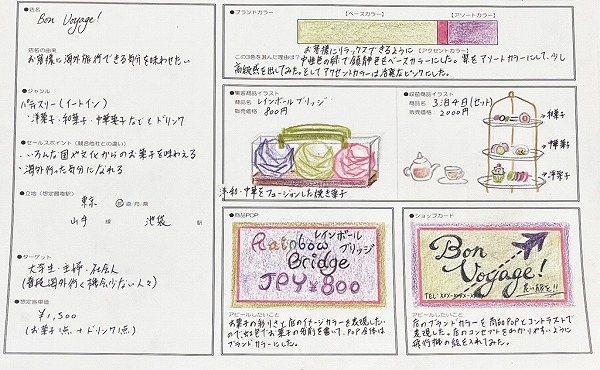 ●店名
Bon Voyage!
店名の由来
お客様に海外旅行できる気分を味わせたい
●ジャンル
パティスリー(イートイン)
洋菓子・和菓子・中華菓子などとドリンク
●セールスポイント(競合他社との違い)
・いろんな国や文化からのお菓子を味わえる
・海外行った気分になれる
●立地(想定最寄駅)
東京 都道府県
山手 線 池袋 駅
●ターゲット
大学生・主婦・社会人
(普段海外行く機会がない人々)
●想定客単価
¥1,500
(お菓子1点+ドリンク1点)
●ブランドカラー
【ベースカラー】
【アソートカラー】
【アクセントカラー】
この3色を選んだ理由は?
お客様にリラックスできるように
中性色の緑で鎮静色をベースカラーにした。紫をアソートカラーにして、少し
高級感を出してみた。そしてアクセントカラーは活発なピンクにした。
●集客商品イラスト
商品名:レインボールブリッジ
販売価格:800円
洋・和・中華をフュージョンした焼き菓子
●収益商品イラスト
商品名:3泊4日(セット)
販売価格:2000円
和菓子
中華菓子
洋菓子
●商品POP
Rainbow Bridge
レインボールブリッジ
JPY¥800
アピールしたいこと
お菓子の彩りさと店のイメージカラーを表現したい
ので、虹色でお菓子の名前を書いて、POP全体は
ブランドカラーにした。
●ショップカード
Bon Voyage!
良い旅を!!
TEL:XXX-XXXX-XXX
アピールしたいこと
店のブランドカラーを商品POPとコントラストで
表現した。店のコンセプトをわかりやすいように
飛行機の絵を入れてみた。